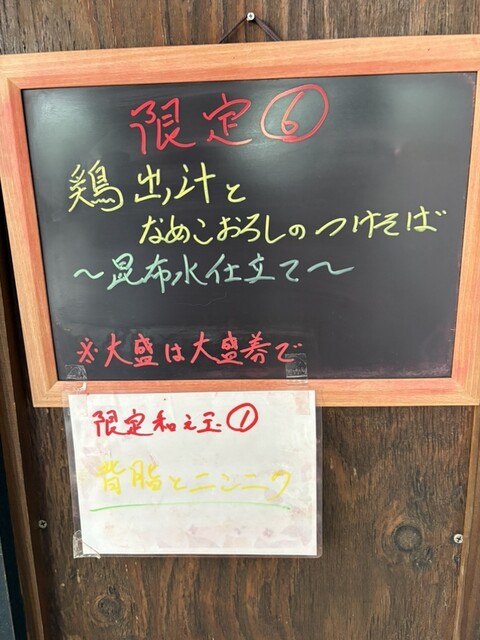 限定⑥
鶏出汁と
なめこおろしのつけそば
～昆布水仕立て～
※大盛は大盛券で
限定和え玉①
背脂とニンニク